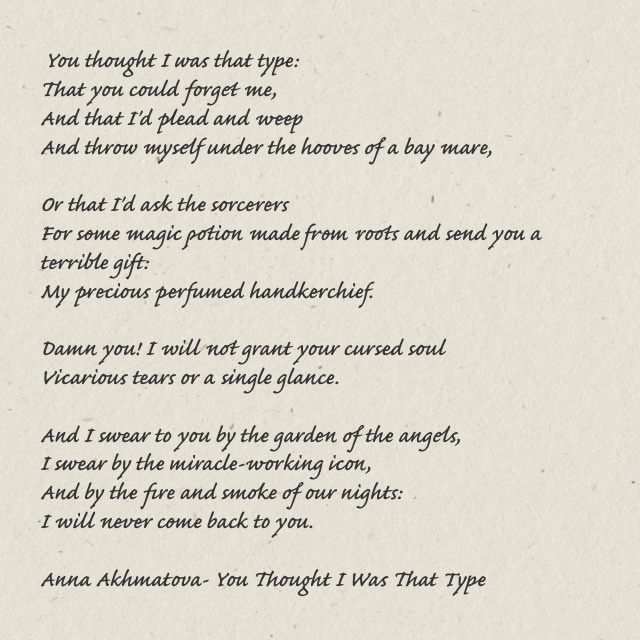 You thought I was that type:
That you could forget me,
And that I'd plead and weep
And throw myself under the hooves of a bay mare,
Or that I'd ask the sorcerers
For some magic potion made from roots and send you a
terrible gift:
My precious perfumed handkerchief.
Damn you! I will not grant your cursed soul
Vicarious tears or a single glance.
And I swear to you by the garden of the angels,
I swear by the miracle-working icon,
And by the fire and smoke of our nights:
I will never come back to you.
Anna Akhmatova- You Thought I Was That Type